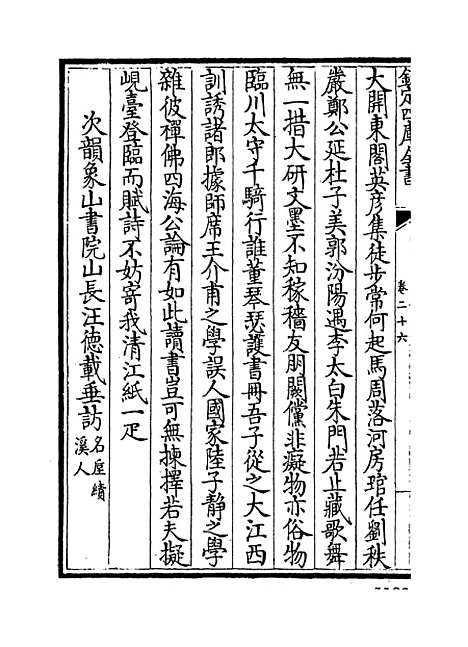 欽定四庫全書
卷二十六
大開東閣英彦集徒步常何起馬周落河房琯任劉秩
嚴鄭公延杜子美郭汾陽遇李太白朱門若止藏歌舞
無一措大研文墨不知稼穡友朋闕儻非癡物亦俗物
臨川太守千騎行誰董琴瑟護書冊吾子從之大江西
訓誘諸郎據師席王介甫之學誤人國家陸子静之學
雜彼禪佛四海公論有如此讀書豈可無揀擇若夫擬
峴臺登臨而賦詩不妨寄我清江紙一疋
次韻象山書院山長汪德載垂訪名庭續溪人